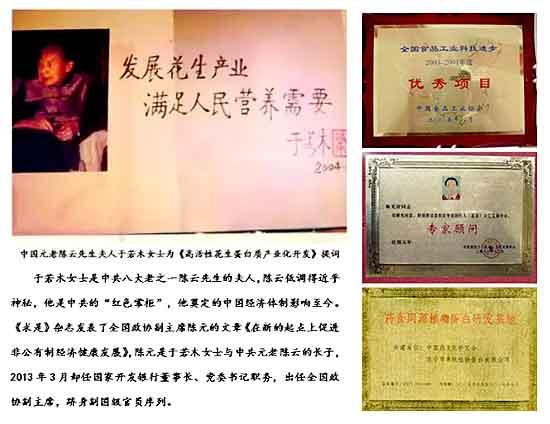 发展花生产业
满足人民营养需要
于若木
2004
中国元老陈云先生夫人于若木女士为《高活性花生蛋白质产业化开发》提词
于若木女士是中共八大老之一陈云先生的夫人，陈云低调得近乎
神秘，他是中共的“红色掌柜”，他奠定的中国经济体制影响至今。
《求是》杂志发表了全国政协副主席陈元的文章《在新的起点上促进
非公有制经济健康发展》，陈元是于若木女士与中共元老陈云的长子，
2013年3月卸任国家开发银行董事长、党委书记职务，出任全国政
协副主席，跻身副国级官员序列。
全国食品工业科技进步
2003-2004年度
优秀项目
中国食品工业协会
专家顾问
药食同源植物蛋白研发基地